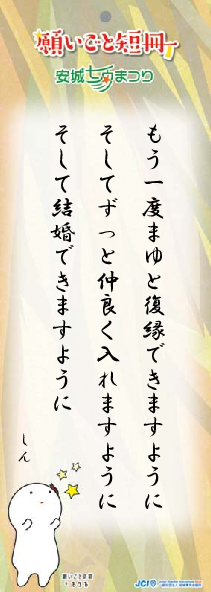 願いごと短冊
安城七夕まつり
もう一度まゆと復縁できますように
そしてずっと仲良く入れますように
そして結婚できますように
しん
願いごと短冊
JCI